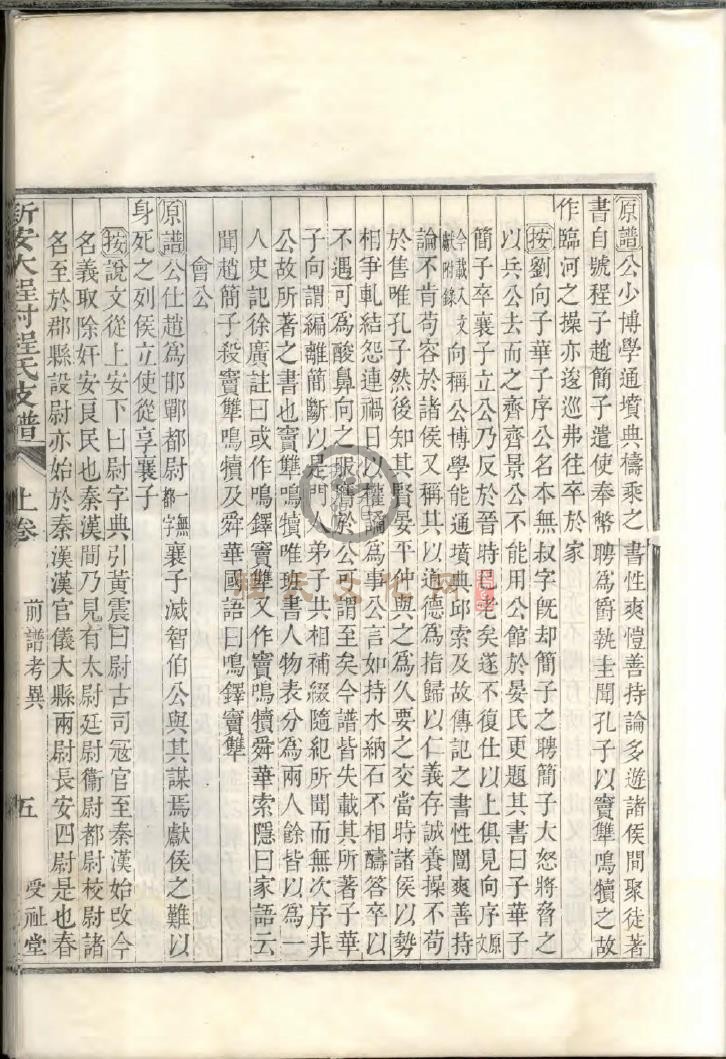 原譜公少博學通墳典檮乘之書性爽愷善持論多遊諸侯間聚徒著
書自號程子趙簡子遣使奉幣聘爲爵執圭聞孔子以竇犨鳴犢之故
作臨河之操亦逡巡弗往卒於家
按劉向子華子序公名本無叔字旣却簡子之聘簡子大怒將脅之
以兵公去而之齊齊景公不能用公館於晏氏更題其書曰子華子
簡子卒襄子立公乃反於晉時已老矣遂不復仕以上俱見向序原文
今載入文獻附錄向稱公博學能通墳典邱索及故傳記之書性闓爽善持
論不肯苟容於諸侯又稱其以道德爲指歸以仁義存誠養操不苟
於售唯孔子然後知其賢晏平仲與之爲久要之交當時諸侯以勢
相爭軋結怨連禍日以權譎爲事公言如持水納石不相醻答卒以
不遇可爲酸鼻向之服膺於公可謂至矣今譜皆失載其所著子華
子向謂編離簡斷以是門人弟子共相補綴隨紀所聞而無次序非
公故所著之書也竇犨鳴犢唯班書人物表分爲兩人餘皆以爲一
人史記徐廣註曰或作鳴鐸竇犨又作竇鳴犢舜華索隱曰家語云
聞趙簡子殺竇犨鳴犢及舜華國語曰鳴鐸竇犨
會公
原譜公仕趙爲邯鄲都尉一無都字襄子滅智伯公與其謀焉獻侯之難以
身死之列侯立使從享襄子
按說文從上安下曰尉字典引黃震曰尉古司寇官至秦漢始改今
名義取除奸安良民也秦漢間乃見有太尉廷尉衞尉都尉校尉諸
名至於郡縣設尉亦始於秦漢漢官儀大縣兩尉長安四尉是也春
新安大程村程氏支譜 上卷 前譜考異 五 受祉堂